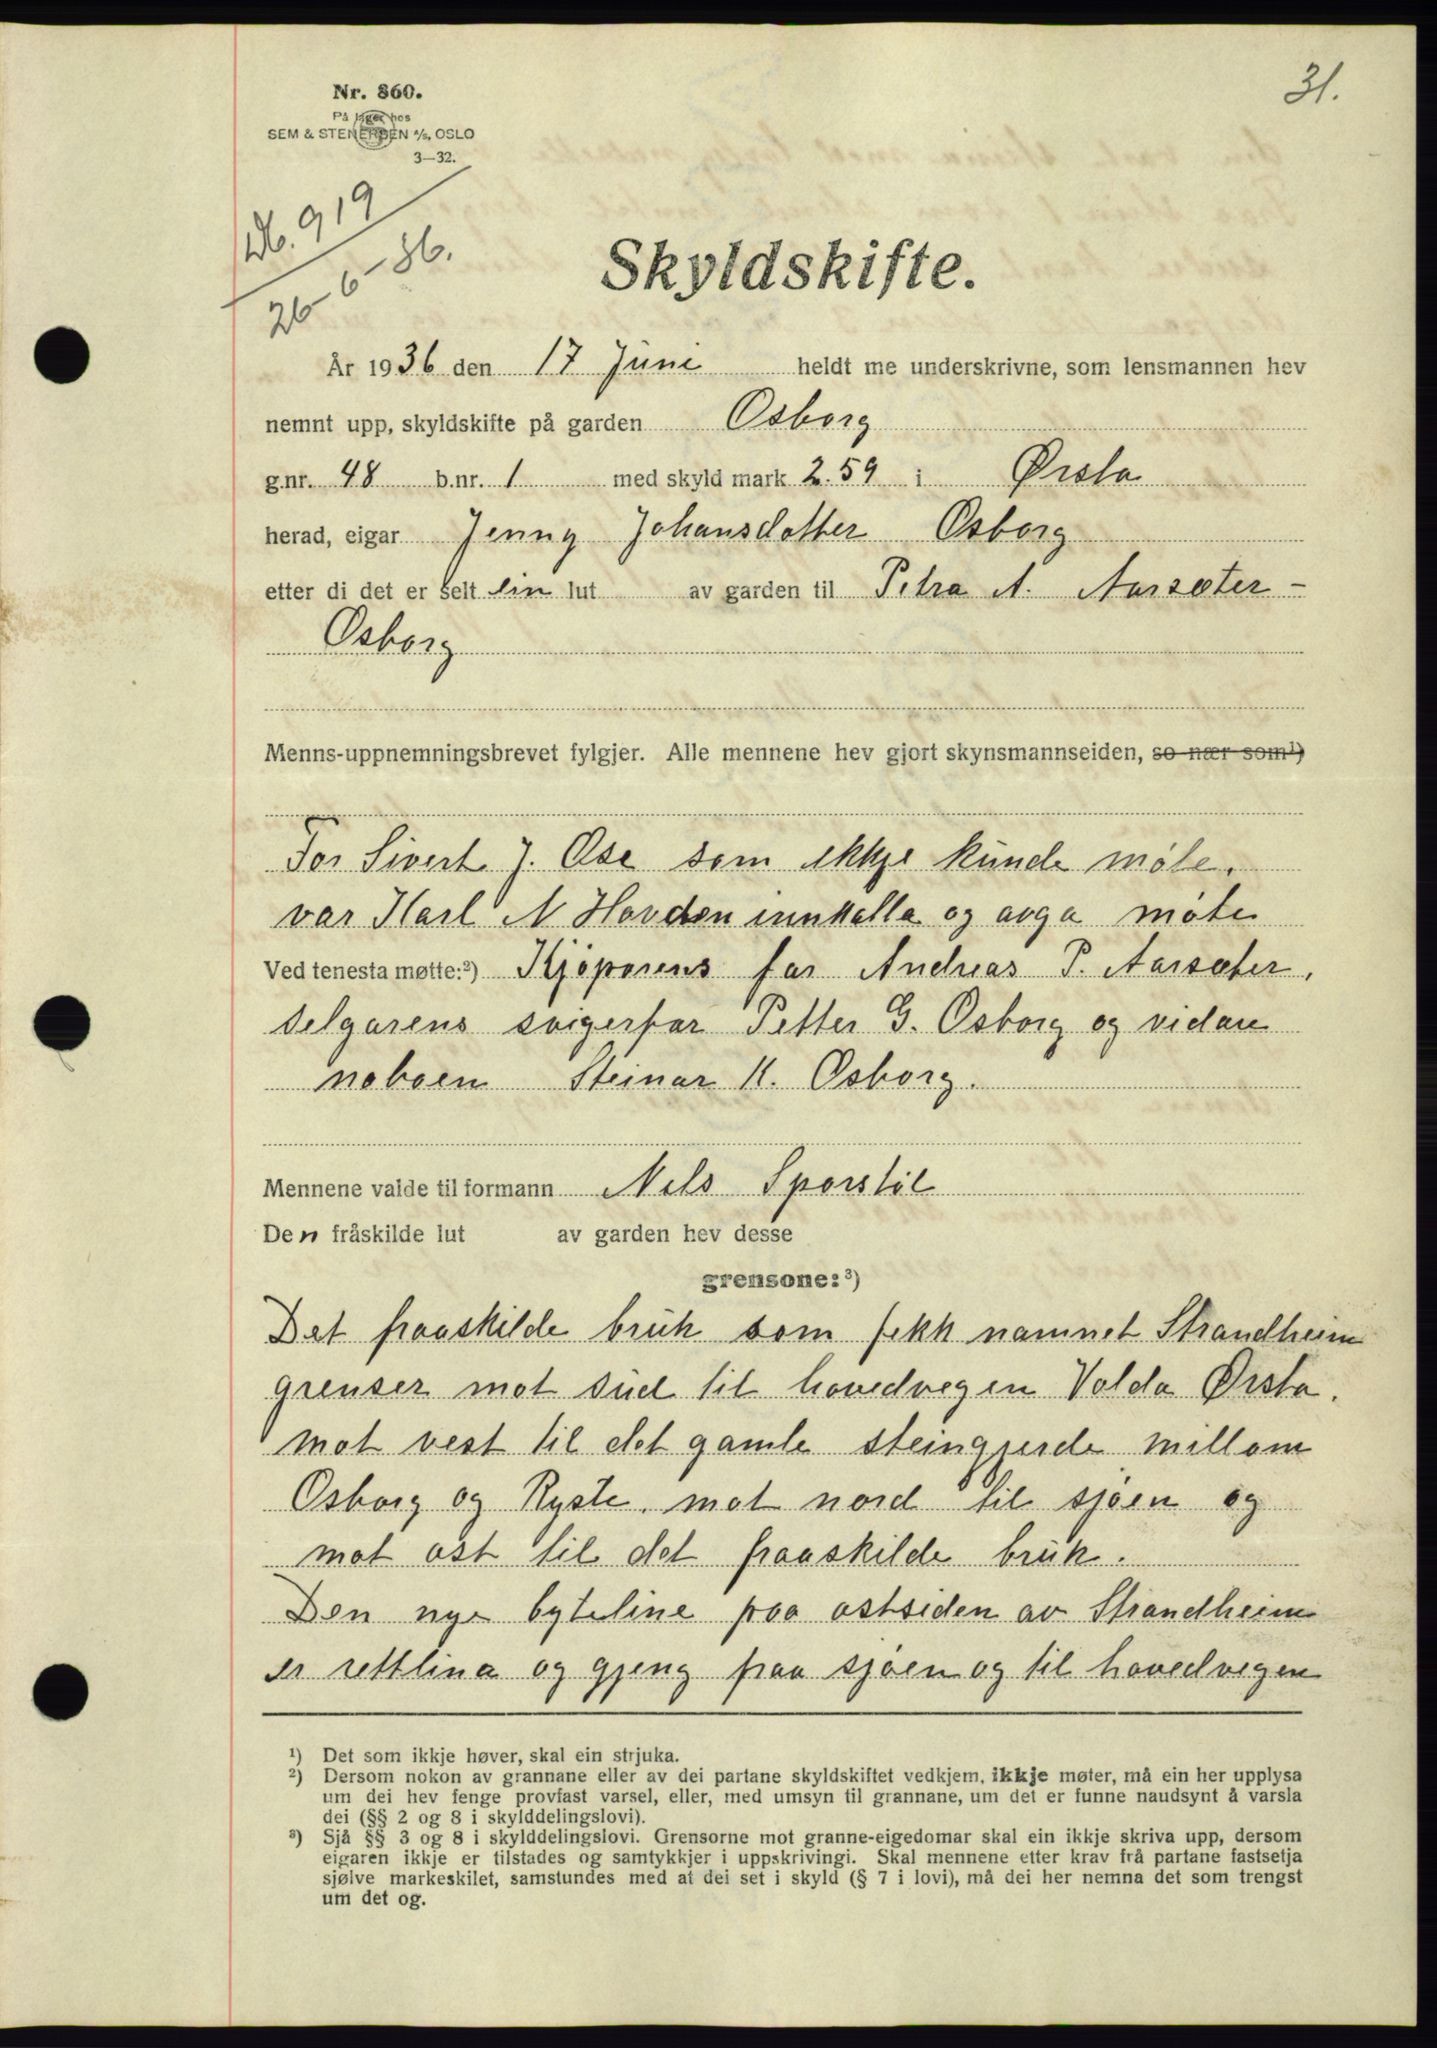 31.
Nr. 860.
På lager hos
SEM & STENERSEN A/S, OSLO
3—32.
Db. 919
26-6-36.
Skyldskifte.
År 1936 den 17 Juni heldt me underskrivne, som lensmannen hev
nemnt upp, skyldskifte på garden Osborg
g.nr. 48 b.nr. 1 med skyld mark 2.59 i Ørsta
herad, eigar Jenny Johansdotter Osborg
etter di det er selt ein lut av garden til Petra A. Aarsæter -
Osborg
Menns-uppnemningsbrevet fylgjer. Alle mennene hev gjort skynsmannseiden, so nær som¹)
For Sivert J. Ose som ikkje kunde møte,
var Karl N Hovden innkalla og avga møte
Ved tenesta møtte:²) Kjøparens far Andreas P. Aarsæter,
selgarens svigerfar Petter G. Osborg og vidare
naboen Steinar K. Osborg.
Mennene valde til formann Nils Sporstøl
Den fråskilde lut av garden hev desse
grensone:³)
Det fraaskilde bruk som fekk namnet Strandheim
grenser mot sud til hovedvegen Volda Ørsta,
mot vest til det gamle steingjerde millom
Osborg og Ryste, mot nord til sjøen og
mot ost til det fraaskilde bruk.
Den nye byteline paa ostsiden av Strandheim
er rettlina og gjeng fraa sjøen og til hovedvegen
¹) Det som ikkje høver, skal ein strjuka.
²) Dersom nokon av grannane eller av dei partane skyldskiftet vedkjem, ikkje møter, må ein her upplysa
um dei hev fenge provfast varsel, eller, med umsyn til grannane, um det er funne naudsynt å varsla
dei (§§ 2 og 8 i skylddelingslovi).
³) Sjå §§ 3 og 8 i skylddelingslovi. Grensorne mot granne-eigedomar skal ein ikkje skriva upp, dersom
eigaren ikkje er tilstades og samtykkjer i uppskrivingi. Skal mennene etter krav frå partane fastsetja
sjølve markeskilet, samstundes med at dei set i skyld (§ 7 i lovi), må dei her nemna det som trengst
um det og.